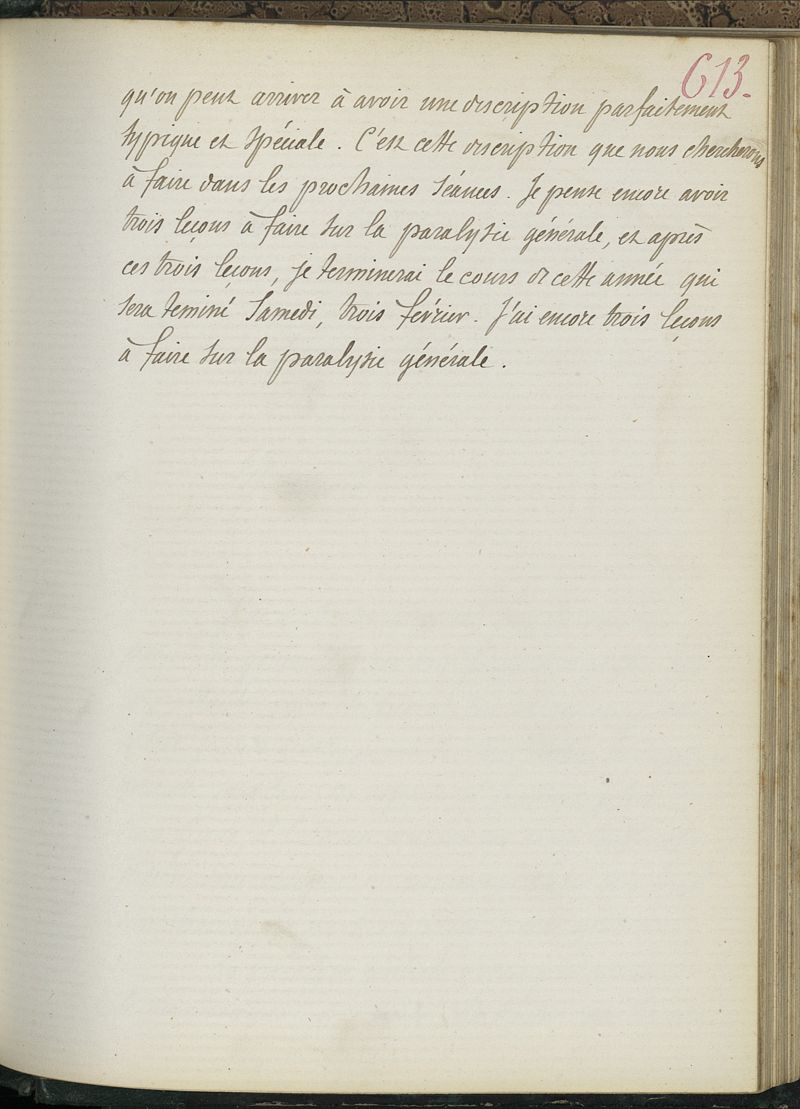 613.
qu'on peut arriver à avoir une description parfaitement
typique et spéciale. C'est cette description que nous chercherons
à faire dans les prochaines séances. Je pense encore avoir
trois leçons à faire sur la paralysie générale, et après
ces trois leçons, je terminerai le cours de cette année qui
sera teminé Samedi, trois février. J'ai encore trois leçons
à faire sur la paralysie générale.